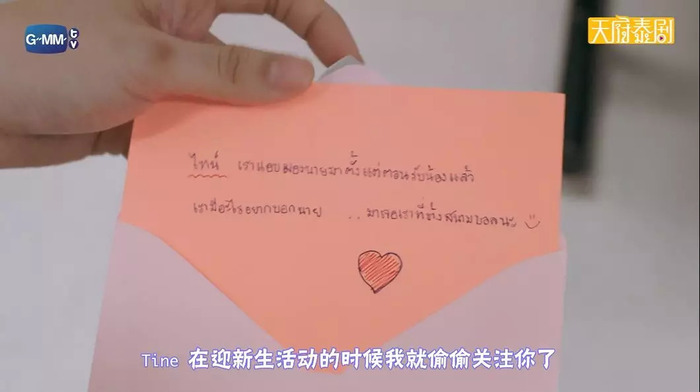 GMM tv
天府泰剧
ไทน์ เราแอบมองนายมาตั้งแต่ตอนรับน้องแล้ว
เรามีอะไรอยากบอกนาย ..มาเจอเราที่ข้างสนามบอลนะ
Tine 在迎新生活动的时候我就偷偷关注你了